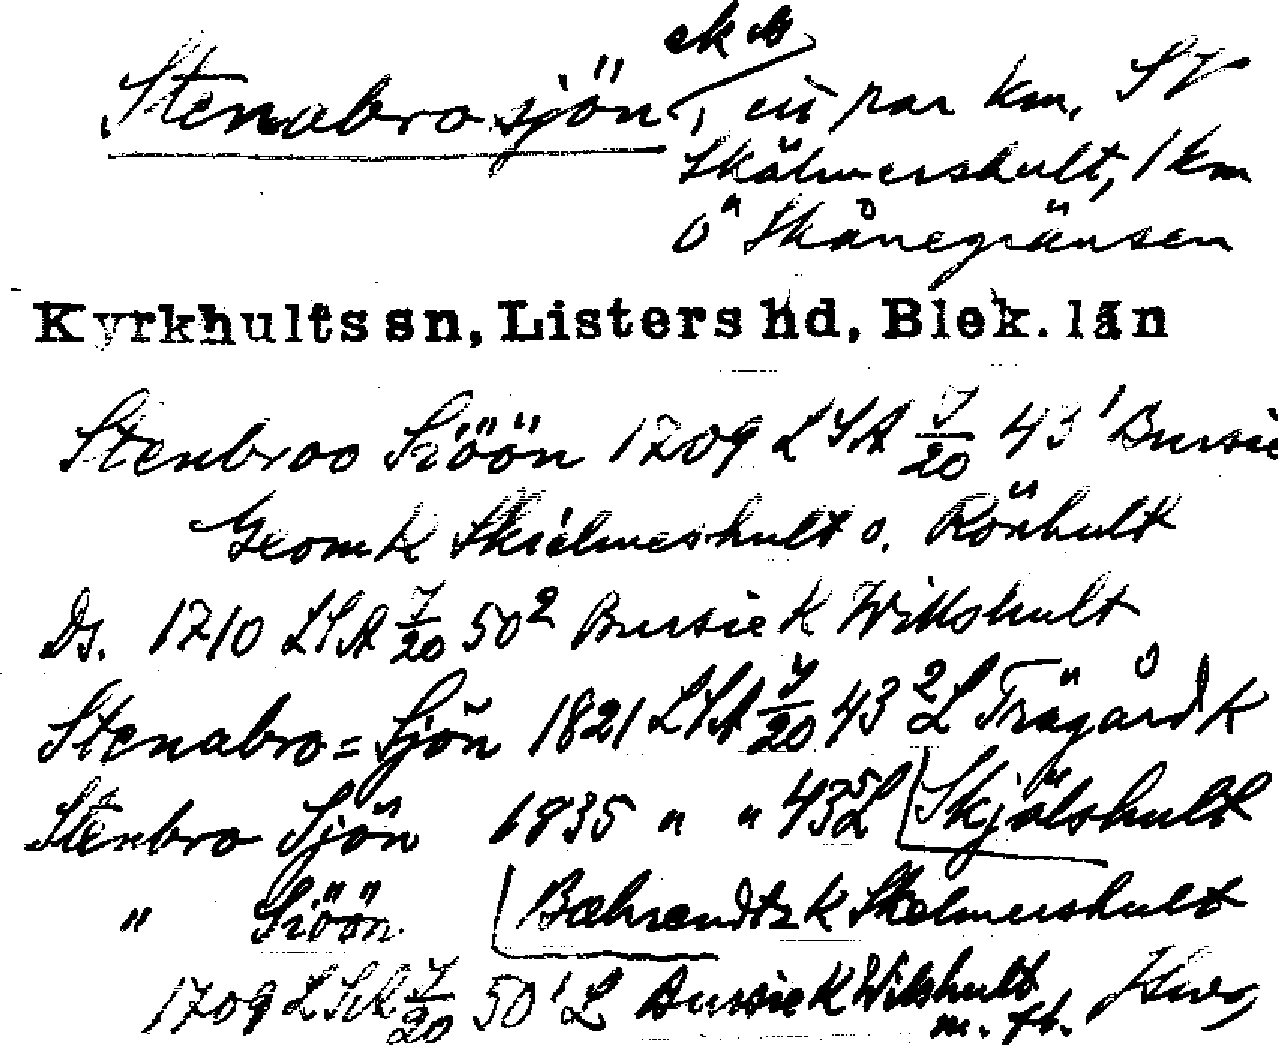 ek. bl
Stenabrosjön, ett par km. SV
Skälmershult, 1 km
Ö Skånegränsen
Kyrkhults sn, Listers hd, Blek. län
Stenbroo Siöön 1709 LSA J/20 43¹ Bursie
Geom K Skielmeshult o. Rönhult
Ds. 1710 LSA J/20 50² Bursie K Willshult
Stenabro=Sjön 1821 LSA J/20 43² L Trägård K
Stenbro Sjön 1835 " " 43⁵ L Skjölshult
" Siöön Bæhrendtz K Skelmershult
1709 LSA J/20 50¹ L Bursie K Wilshult
m. fl.